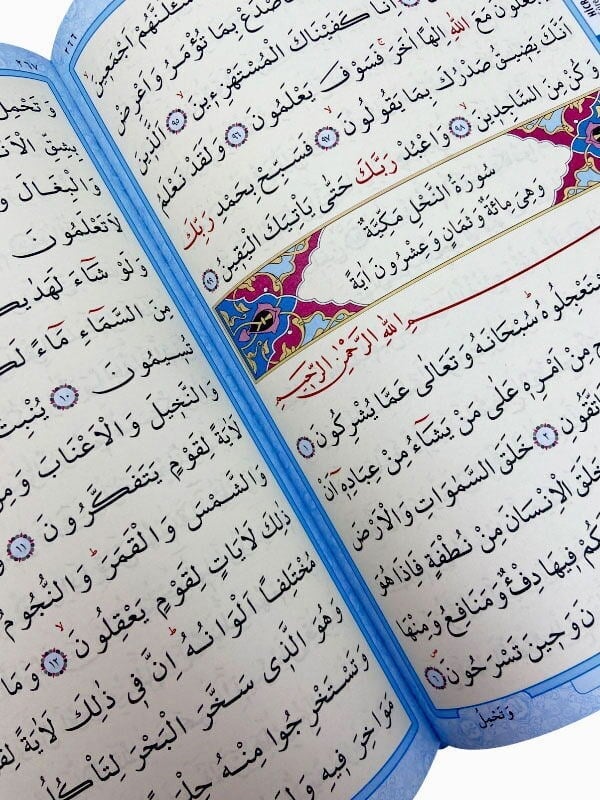 ٢٦٦
سْـَٔلَنَّهُمْ اَجْمَعٖينَ
صْدَعْ بِمَا تُؤْمَرُ وَاَعْرِضْ
اِنَّا كَفَيْنَاكَ الْمُسْتَهْزِءٖينَ ٩٥ اَلَّذٖينَ
يَجْعَلُونَ مَعَ اللّٰهِ اِلٰهًا اٰخَرَ فَسَوْفَ يَعْلَمُونَ ٩٦ وَلَقَدْ نَعْلَمُ
اَنَّكَ يَضٖيقُ صَدْرُكَ بِمَا يَقُولُونَ ٩٧ فَسَبِّحْ بِحَمْدِ رَبِّكَ
وَكُنْ مِنَ السَّاجِدٖينَ ٩٨ وَاعْبُدْ رَبَّكَ حَتّٰى يَأْتِيَكَ الْيَقٖينُ ٩٩
سُورَةُ النَّحْلِ مَكِّيَّةٌ
وَهِىَ مِائَةٌ وَثَمَانٍ وَعِشْرُونَ اٰيَةً
اللّٰهِ الرَّحْمٰنِ الرَّحٖيمِ
سْتَعْجِلُوهُ سُبْحَانَهُ وَتَعَالٰى عَمَّا يُشْرِكُونَ ١
مِنْ اَمْرِهٖ عَلٰى مَنْ يَشَٓاءُ مِنْ عِبَادِهٖٓ اَنْ
فَاتَّقُونِ ٢ خَلَقَ السَّمٰوَاتِ وَالْاَرْضَ
خَلَقَ الْاِنْسَانَ مِنْ نُطْفَةٍ فَاِذَا هُوَ
كُمْ فٖيهَا دِفْءٌ وَمَنَافِعُ وَمِنْهَا
نَ وَحٖينَ تَسْرَحُونَ ٦
وَتَحْمِلُ
٢٦٧
وَتَحْمِلُ
بِشِقِّ الْاَنْ
وَالْبِغَالَ وَ
لَا تَعْلَمُونَ
وَلَوْ شَٓاءَ لَهَدٰيكُ
مِنَ السَّمَٓاءِ مَٓاءً لَكُ
تُسٖيمُونَ ١٠ يُنْبِتُ
وَالنَّخٖيلَ وَالْاَعْنَابَ وَمِنْ
لَاٰيَةً لِقَوْمٍ يَتَفَكَّرُونَ ١١ وَ
وَالشَّمْسَ وَالْقَمَرَ وَالنُّجُومُ
ذٰلِكَ لَاٰيَاتٍ لِقَوْمٍ يَعْقِلُونَ ١٢ وَمَا
مُخْتَلِفًا اَلْوَانُهُ اِنَّ فٖى ذٰلِكَ لَاٰيَةً لِقَ
وَهُوَ الَّذٖى سَخَّرَ الْبَحْرَ لِتَأْكُلُ
وَتَسْتَخْرِجُوا مِنْهُ حِلْيَ
مَوَاخِرَ فٖيهِ وَلِ